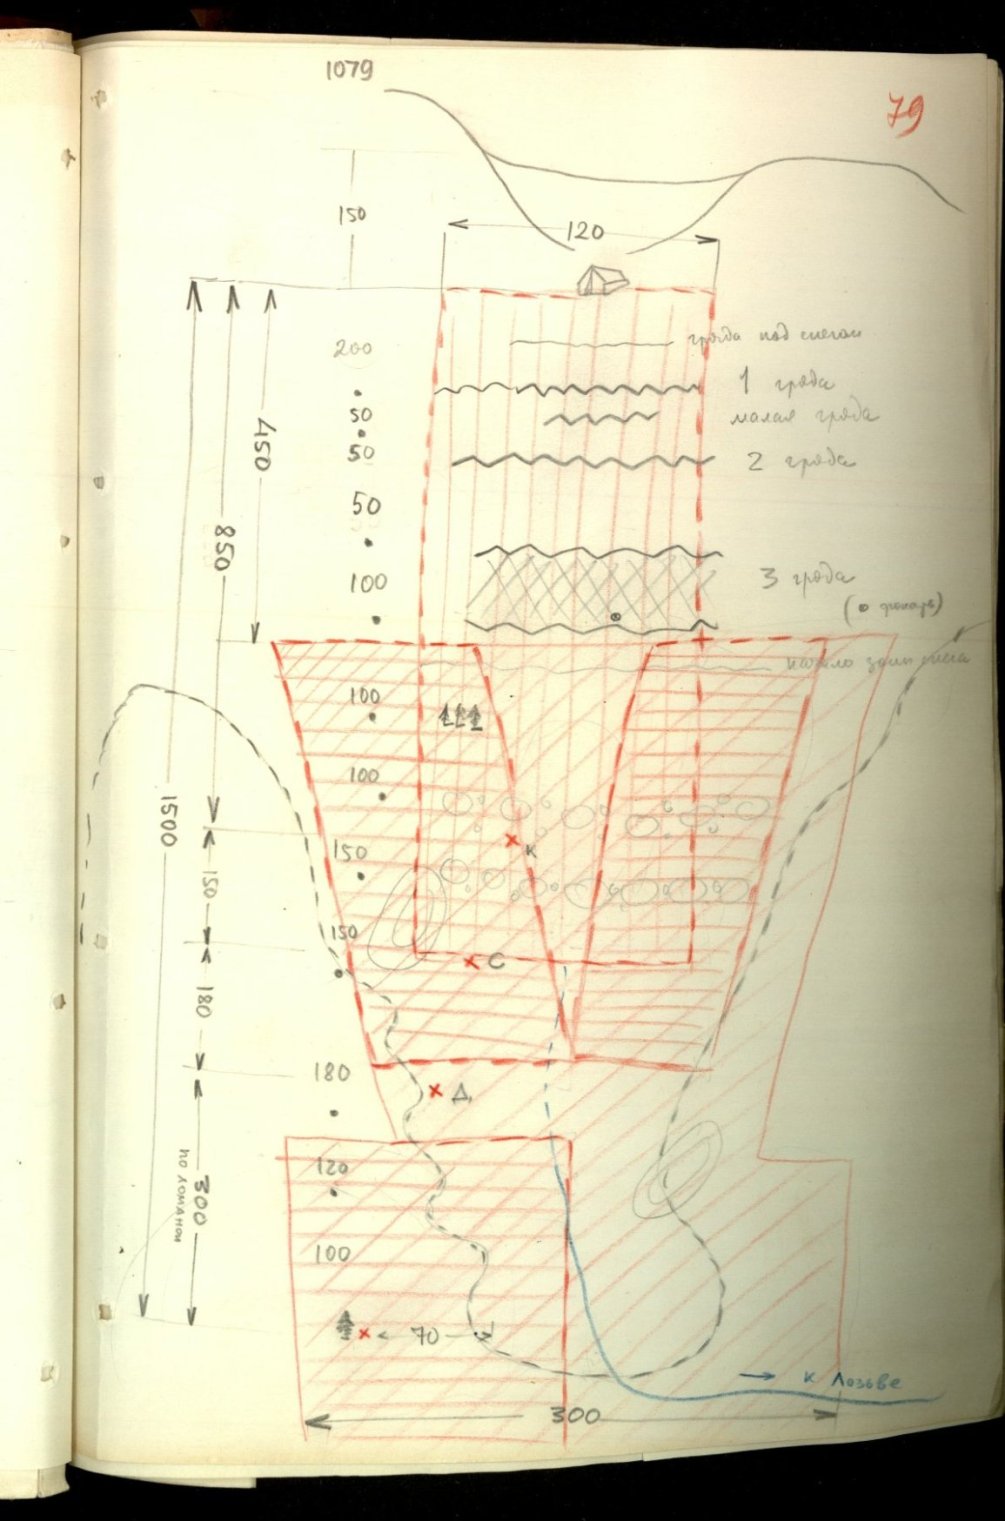 1079
79
150
120
200
гряда под снегом
1 гряда
50
малая гряда
450
50
2 гряда
850
50
100
3 гряда
(фонарь)
начало зоны леса
100
100
1500
150
К
150
150
С
180
180
Д
120
300
по ломаной
100
70
К Лозьве
300